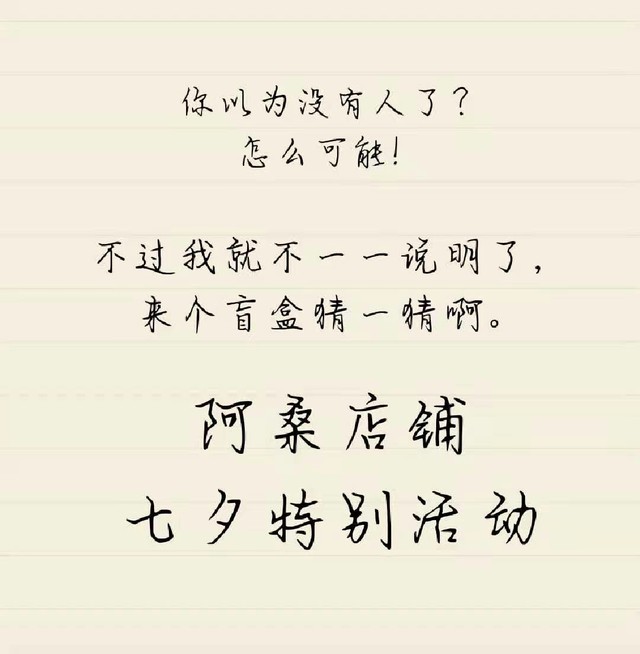 你以为没有人了?
怎么可能!
不过我就不一一说明了,
来个盲盒猜一猜啊。
阿桑店铺
七夕特别活动